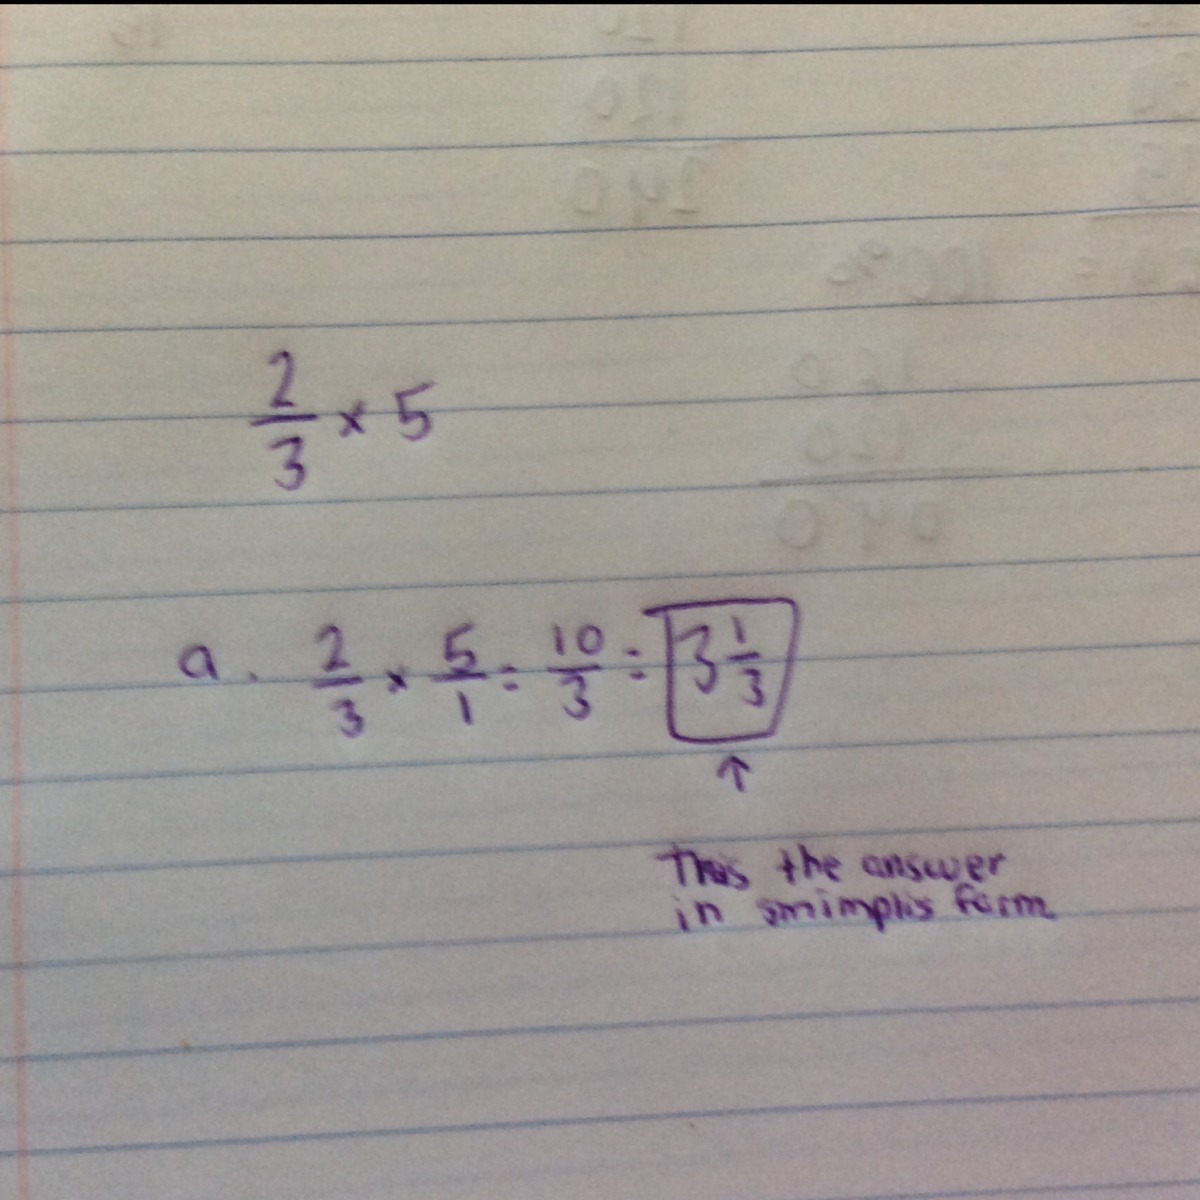 2/3 × 5
a. 2/3 × 5/1 = 10/3 = 3 1/3
↑
the answer
in smimplis form